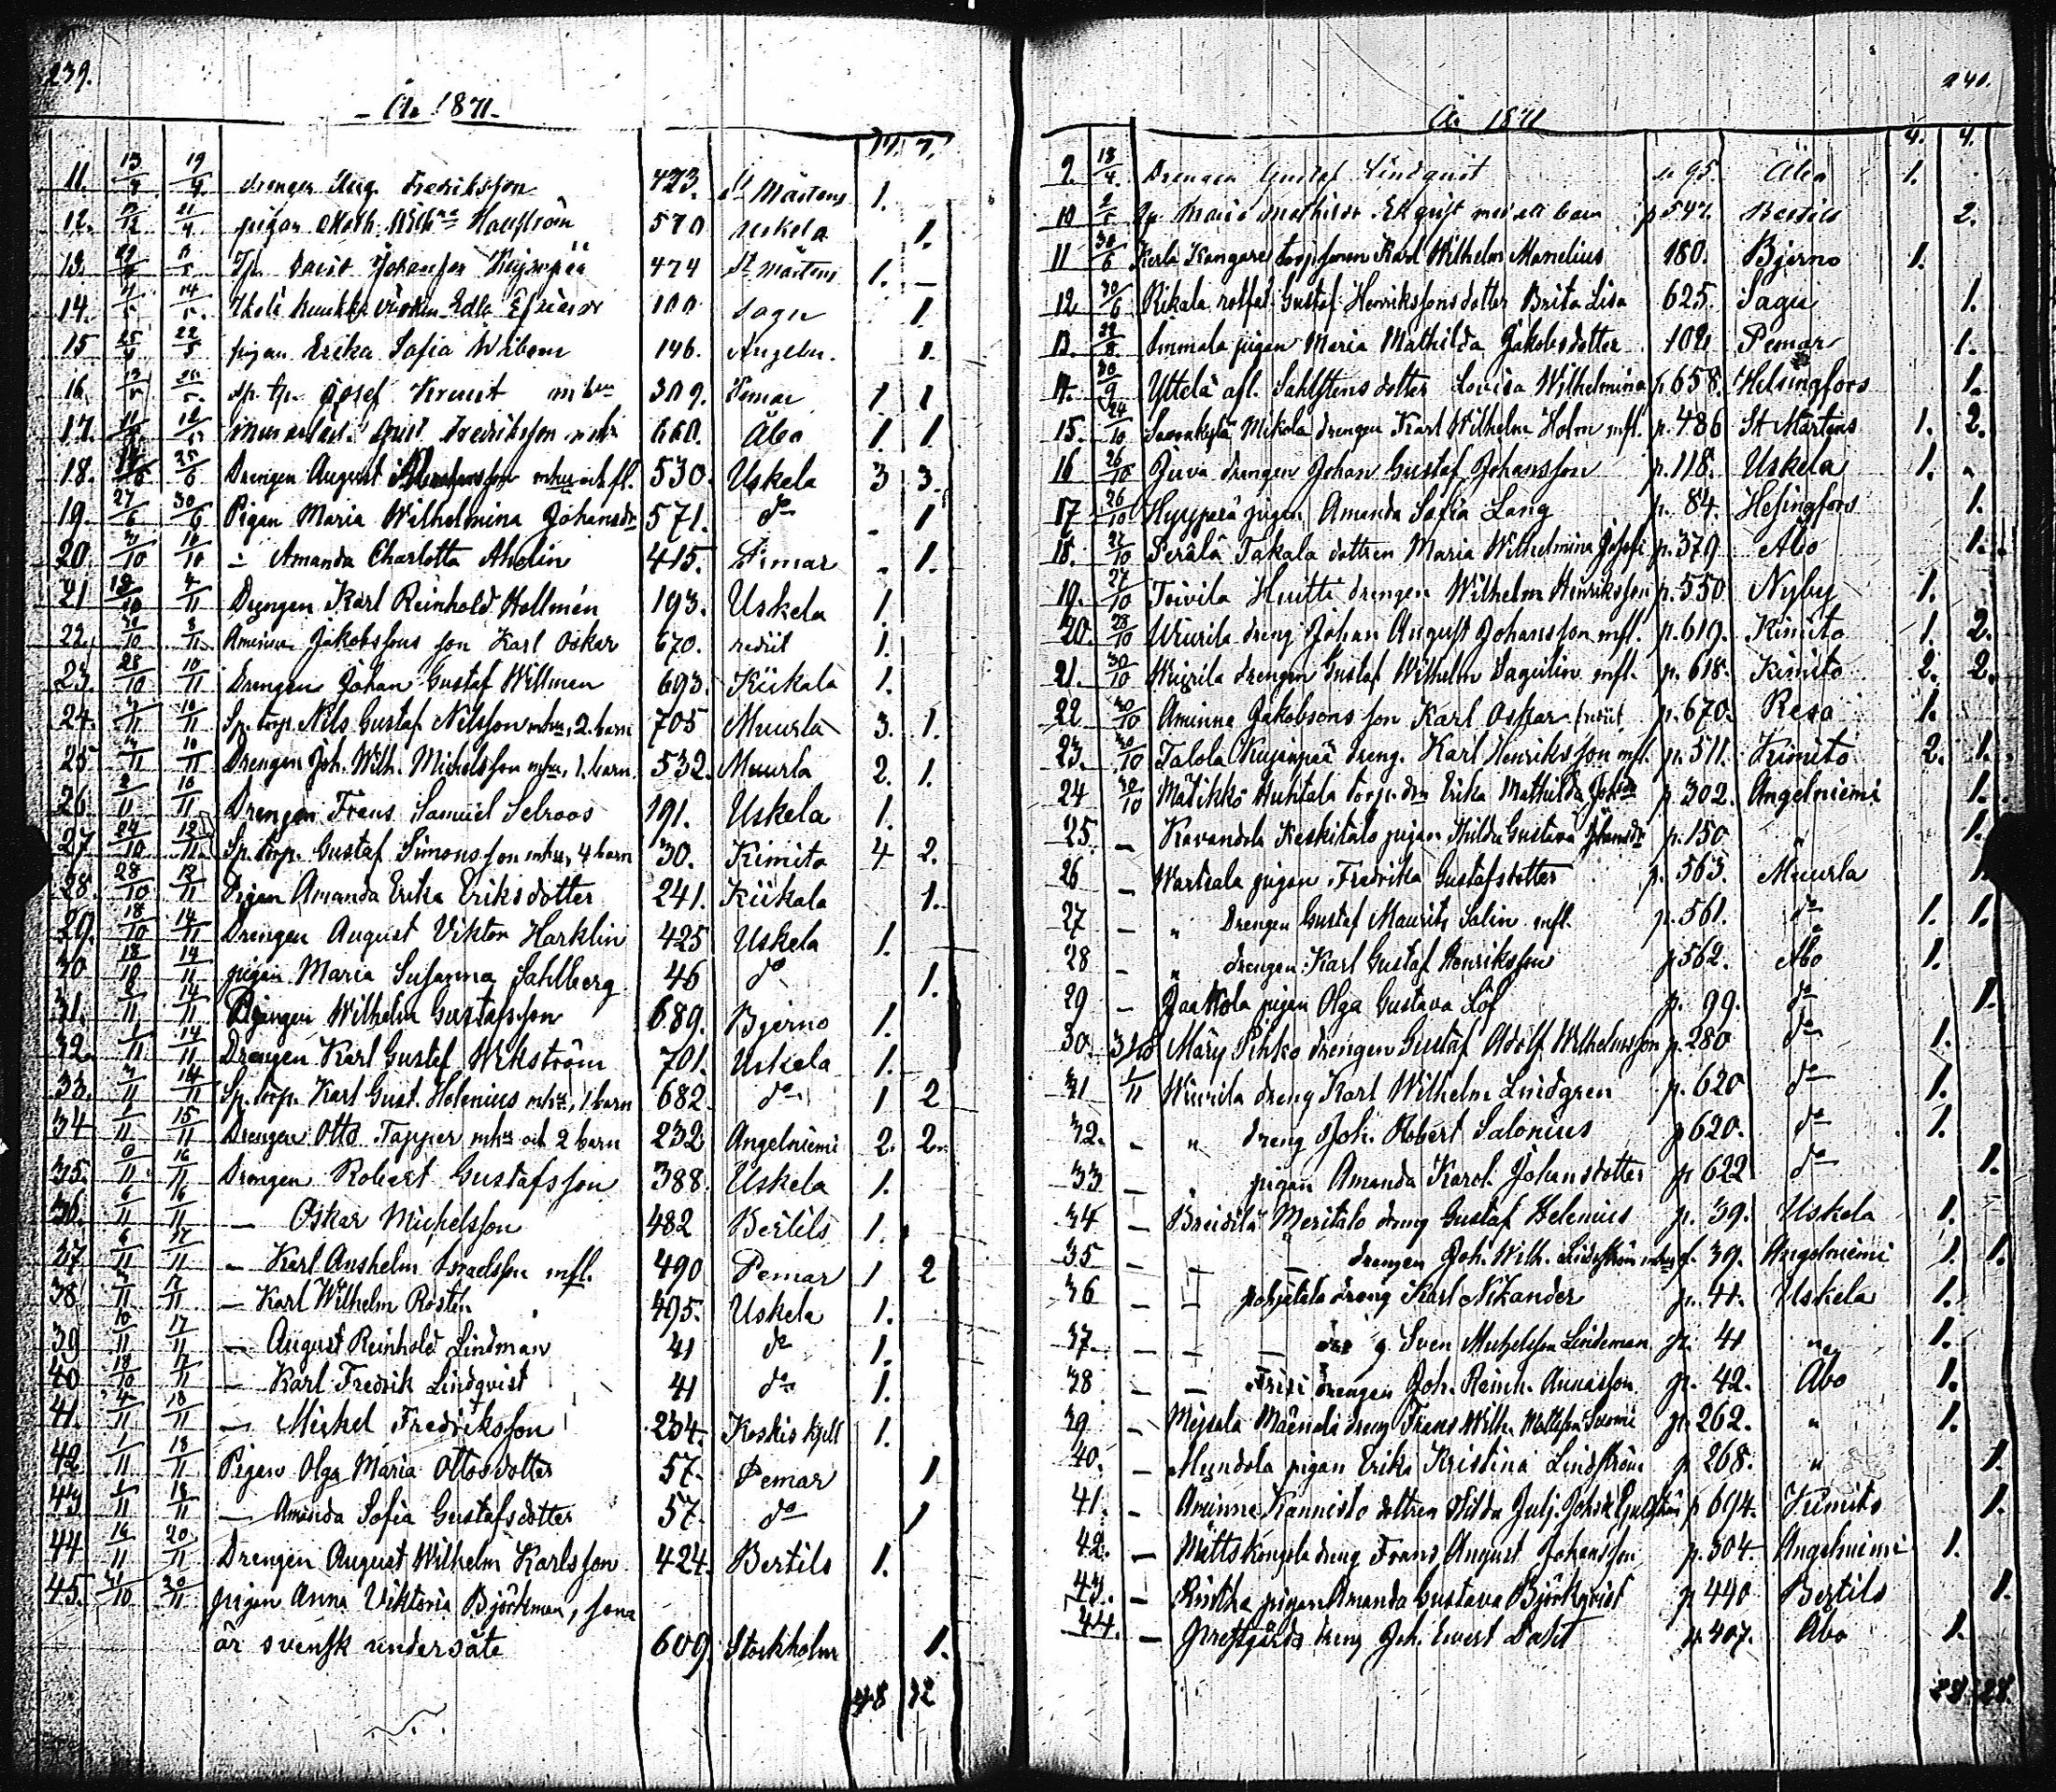 239.
År 1871.
17. 7.
11. 13/4 19/4 drengen Aug. Fredriksson 423. St Mårtens 1.
12. 21/4 pigan Math. Hallström 570 Uskela 1.
13. Tp. David Johansson Kujanpää 474 St Mårtens 1. –
14. 14/5. Edla 100 Sagu 1.
15 25/4 22/5 pigan Erika Sofia Wibom 146. Angeln. 1.
16. 13/5 25/5. sp. tp. Josef 309. Pemar 1 1
17. 12/5 Fredriksson 660. Åbo 1. 1
18. 25/6 Drengen August mhu och fl. 530. Uskela 3 3.
19. 27/6 30/6 Pigan Maria Wilhelmina Johansdr 571. do – 1
20. 3/10 10/10 – Amanda Charlotta Ahelin 415. Pimar . 1.
21 18/10 4/11 Drengen Karl Reinhold Hollmén 193. Uskela 1.
22. 30/10 8/11 Aminne Jakobssons son Karl Oskar 670. rediit 1.
23. 28/10 10/11 Drengen Johan Gustaf Willman 693. Kiikala 1.
24. 10/11 Sp. torp. Nils Gustaf Nilsson mhu, 2. barn 705 Muurla 3. 1.
25 10/11 Drengen Joh. Wilh. Michelsson mhu, 1. barn. 532. Muurla 2. 1.
26. 2/11 10/11 Drengen Frans Samuel Selroos 191. Uskela 1.
27. 24/10 12/11 Sp. torp. Gustaf Simonsson mhu, 4 barn 30. Kimito 4 2.
28. 28/10 12/11 Pigan Amanda Erika Eriksdotter 241. Kiikala 1.
29. 18/10 14/11 Drengen August Viktor Harklin 425 Uskela 1.
30 18/10 14/11 pigan Maria Susanna Sahlberg 46 do 1.
31. 2/11 14/11 Drengen Wilhelm Gustafsson 689. Bjerno 1.
32. 1/11 14/11 Drengen Karl Gustaf Wikström 701. Uskela 1.
33. 3/11 14/11 Sp. torp. Karl Gust. Helenius mhu, 1 barn 682. do 1 2
34 1/11 15/11 Drengen Otto Tapper mhu och 2 barn 232 Angelniemi 2. 2.
35. 9/11 16/11 Drengen Robert Gustafsson 388. Uskela 1.
36. 6/11 16/11 – Oskar Michelsson 482 Bertils 1.
37 6/11 17/11 – Karl Anshelm Israelsson mfl. 490 Pemar 1 2
38 3/11 17/11 – Karl Wilhelm Rostén 495. Uskela 1.
39 10/11 17/11 – August Reinhold Lindman 41 do 1.
40 18/10 17/11 – Karl Fredrik Lindqvist 41 do 1.
41. 4/11 18/11 – Mickel Fredriksson 234. Koskis kpll 1.
42 1/11 18/11 Pigan Olga Maria Ottosdotter 57. Pemar 1
43 1/11 18/11 – Amanda Sofia Gustafsdotter 57. do 1
44 14/11 20/11 Drengen August Wilhelm Karlsson 424. Bertils 1.
45. 31/10 20/11 pigan Anna Viktoria Björkman, som
är svensk undersåte 609. Stockholm 1.
48 32
240.
År 1871
4. 4.
9. 18/4. Drengen Gustaf Lindqvist p 95. Åbo 1.
10 2/5 med ett barn p 547. Bertils 2.
11 30/6 Kangare torpsonen Karl Wilhelm Manelius 180. Bjerno 1.
12 30/6 Rikala Gustaf Henrikssons dotter Brita Lisa 625. Sagu 1.
13. 22/8 Immala pigan Maria Mathilda Jakobsdotter 102 Pemar 1.
14. 30/9 Yttelä afl. Sahlstens dotter Lovisa Wilhelmina p. 658. Helsingfors 1.
15. 24/10 Mikola drengen Karl Wilhelm Holm mfl. p. 486 St Mårtens 1. 2.
16 26/10 Juva drengen Johan Gustaf Johansson p. 118. Uskela 1.
17 26/10 Hyypärä pigan Amanda Sofia Lang p. 84. Helsingfors 1.
18. 27/10 Perälä Takala dottren Maria Wilhelmina p. 379 Åbo 1.
19. 27/10 Toivila Huitti drengen Wilhelm Henriksson p. 550 Nyby 1.
20. 28/10 Wiurila dreng Johan August Johansson mfl. p. 619. Kimito 1. 2.
21. 30/10 Wiurila drengen Gustaf Wilhelm Dagulin mfl. p. 618. Kimito 2. 2.
22 30/10 Aminne Jakobsons son Karl Oskar (rediit p. 670. Reso 1.
23. 30/10 Talola Kujanpää dreng. Karl Henriksson mfl. p. 511. Kimito 2. 1.
24 30/10 Mätikkö Huhtala torp. dr Erika Mathilda p. 302. Angelniemi 1.
25. – Kavandola Keskitalo pigan Hilda Gustava Johansdr p. 150. " 1.
26 – Wartsala pigan Fredrika Gustafsdotter p. 563. Muurla 1.
27 – " drengen Gustaf Maurits Salin mfl. p. 561. do 1. 1.
28 – " drengen Karl Gustaf Henriksson p 562. Åbo 1.
29 – Jaakkola pigan Olga Gustava Löf p. 99. do 1.
30. 31/10 Märy Pihko drengen Gustaf Adolf Wilhelmsson p. 280 do 1.
31 1/11 Wiurila dreng Karl Wilhelm Lindgren p. 620 do 1.
32. – " dreng Joh. Robert Salonius p 620. do 1.
33 – " pigan Amanda Karol. Johansdotter p 622 do 1.
34 – Breidilä Meritalo dreng Gustaf Helenius p. 39. Uskela 1.
35 – – – drengen Joh. Wilh. Lindström p. 39. Angelniemi 1. 1.
36 – – pohjatalo dreng Karl Nikander p. 41. Uskela 1.
37. – – – Sven Michelsson Lindeman p. 41 " 1.
38 – – Frisi drengen Joh. Reinh. Annasson p. 42. Åbo 1.
39 – Meisala dreng Frans Wilh. p. 262. " 1.
40. – Myndola pigan Erika Kristina Lindström p 268. " 1.
41. – Aminne Kannisto dottren Hilda Julj. p 694. Kimito 1.
42. – dreng Frans August Johansson p. 304. Angelniemi 1.
43. – pigan Amanda Gustava Björkqvist p 440 Bertils 1.
44. – Prestgårds dreng Joh. Evert p. 407. Åbo 1.
28. 28.